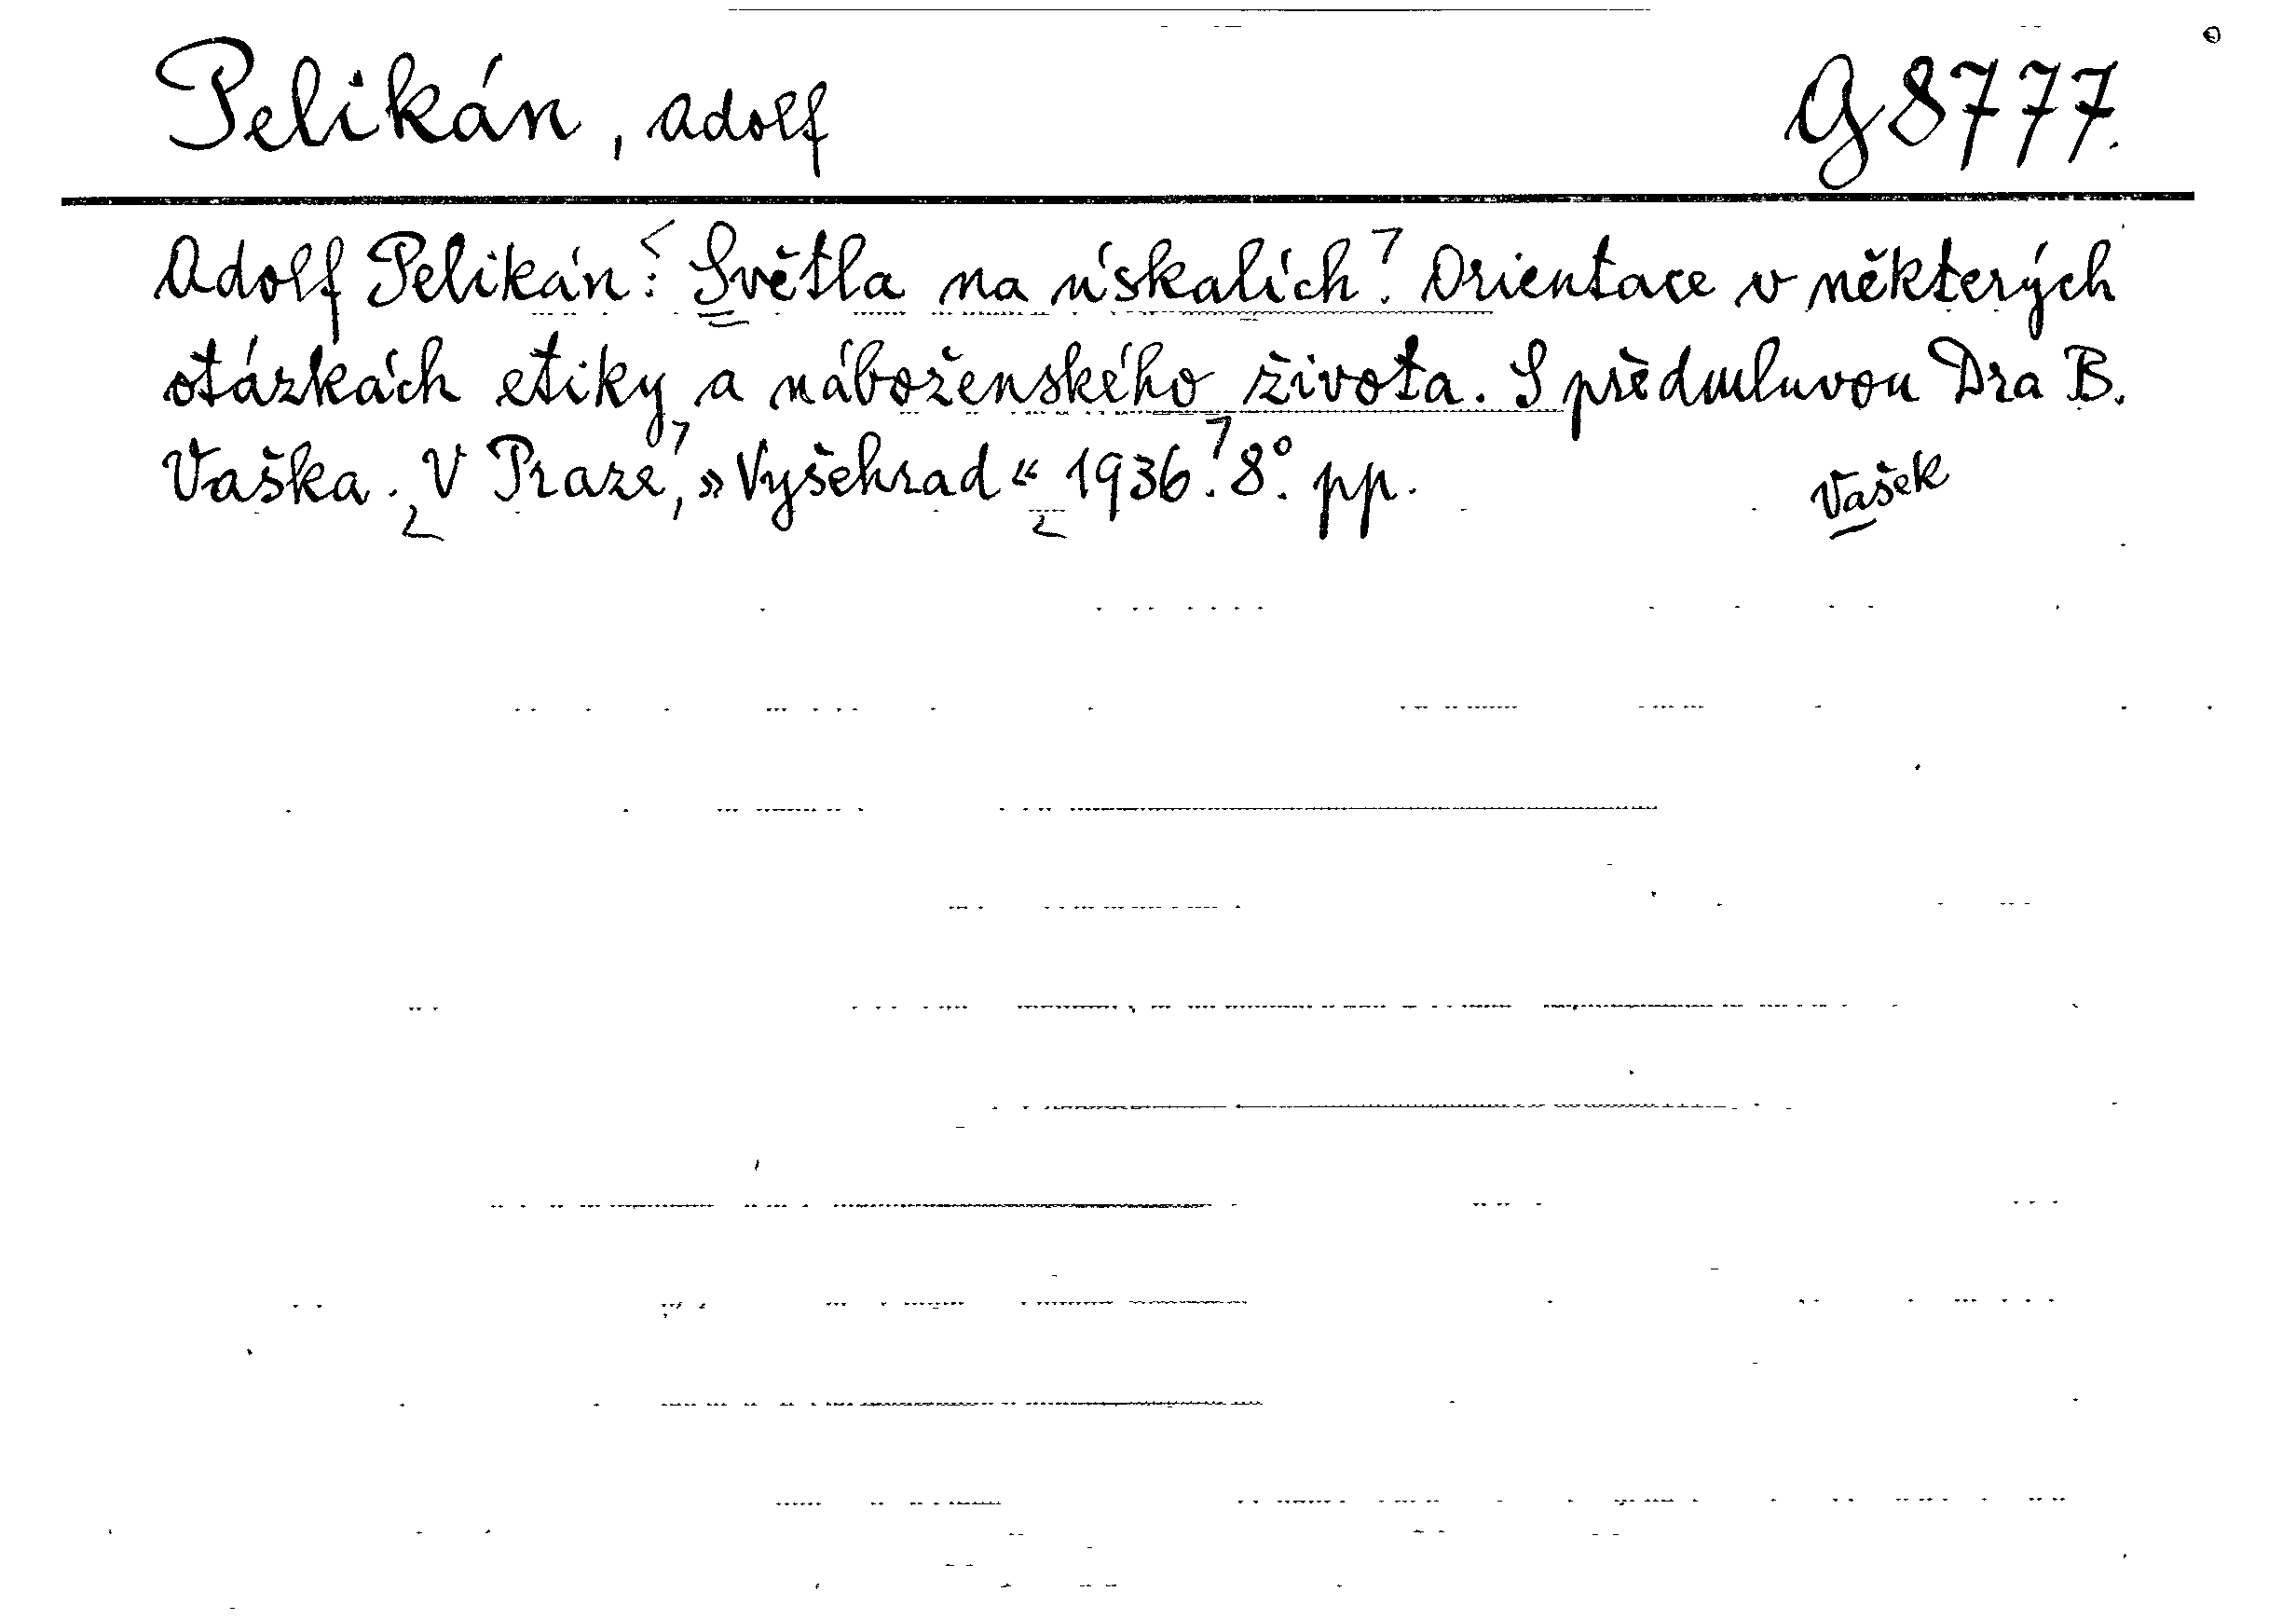 Pelikán, Adolf G 8777.
Adolf Pelikán: Světla na úskalích. Orientace v některých
otázkách etiky a náboženského života. S předmluvou Dra B.
Vaška. V Praze, »Vyšehrad« 1936. 8°. pp.
Vašek